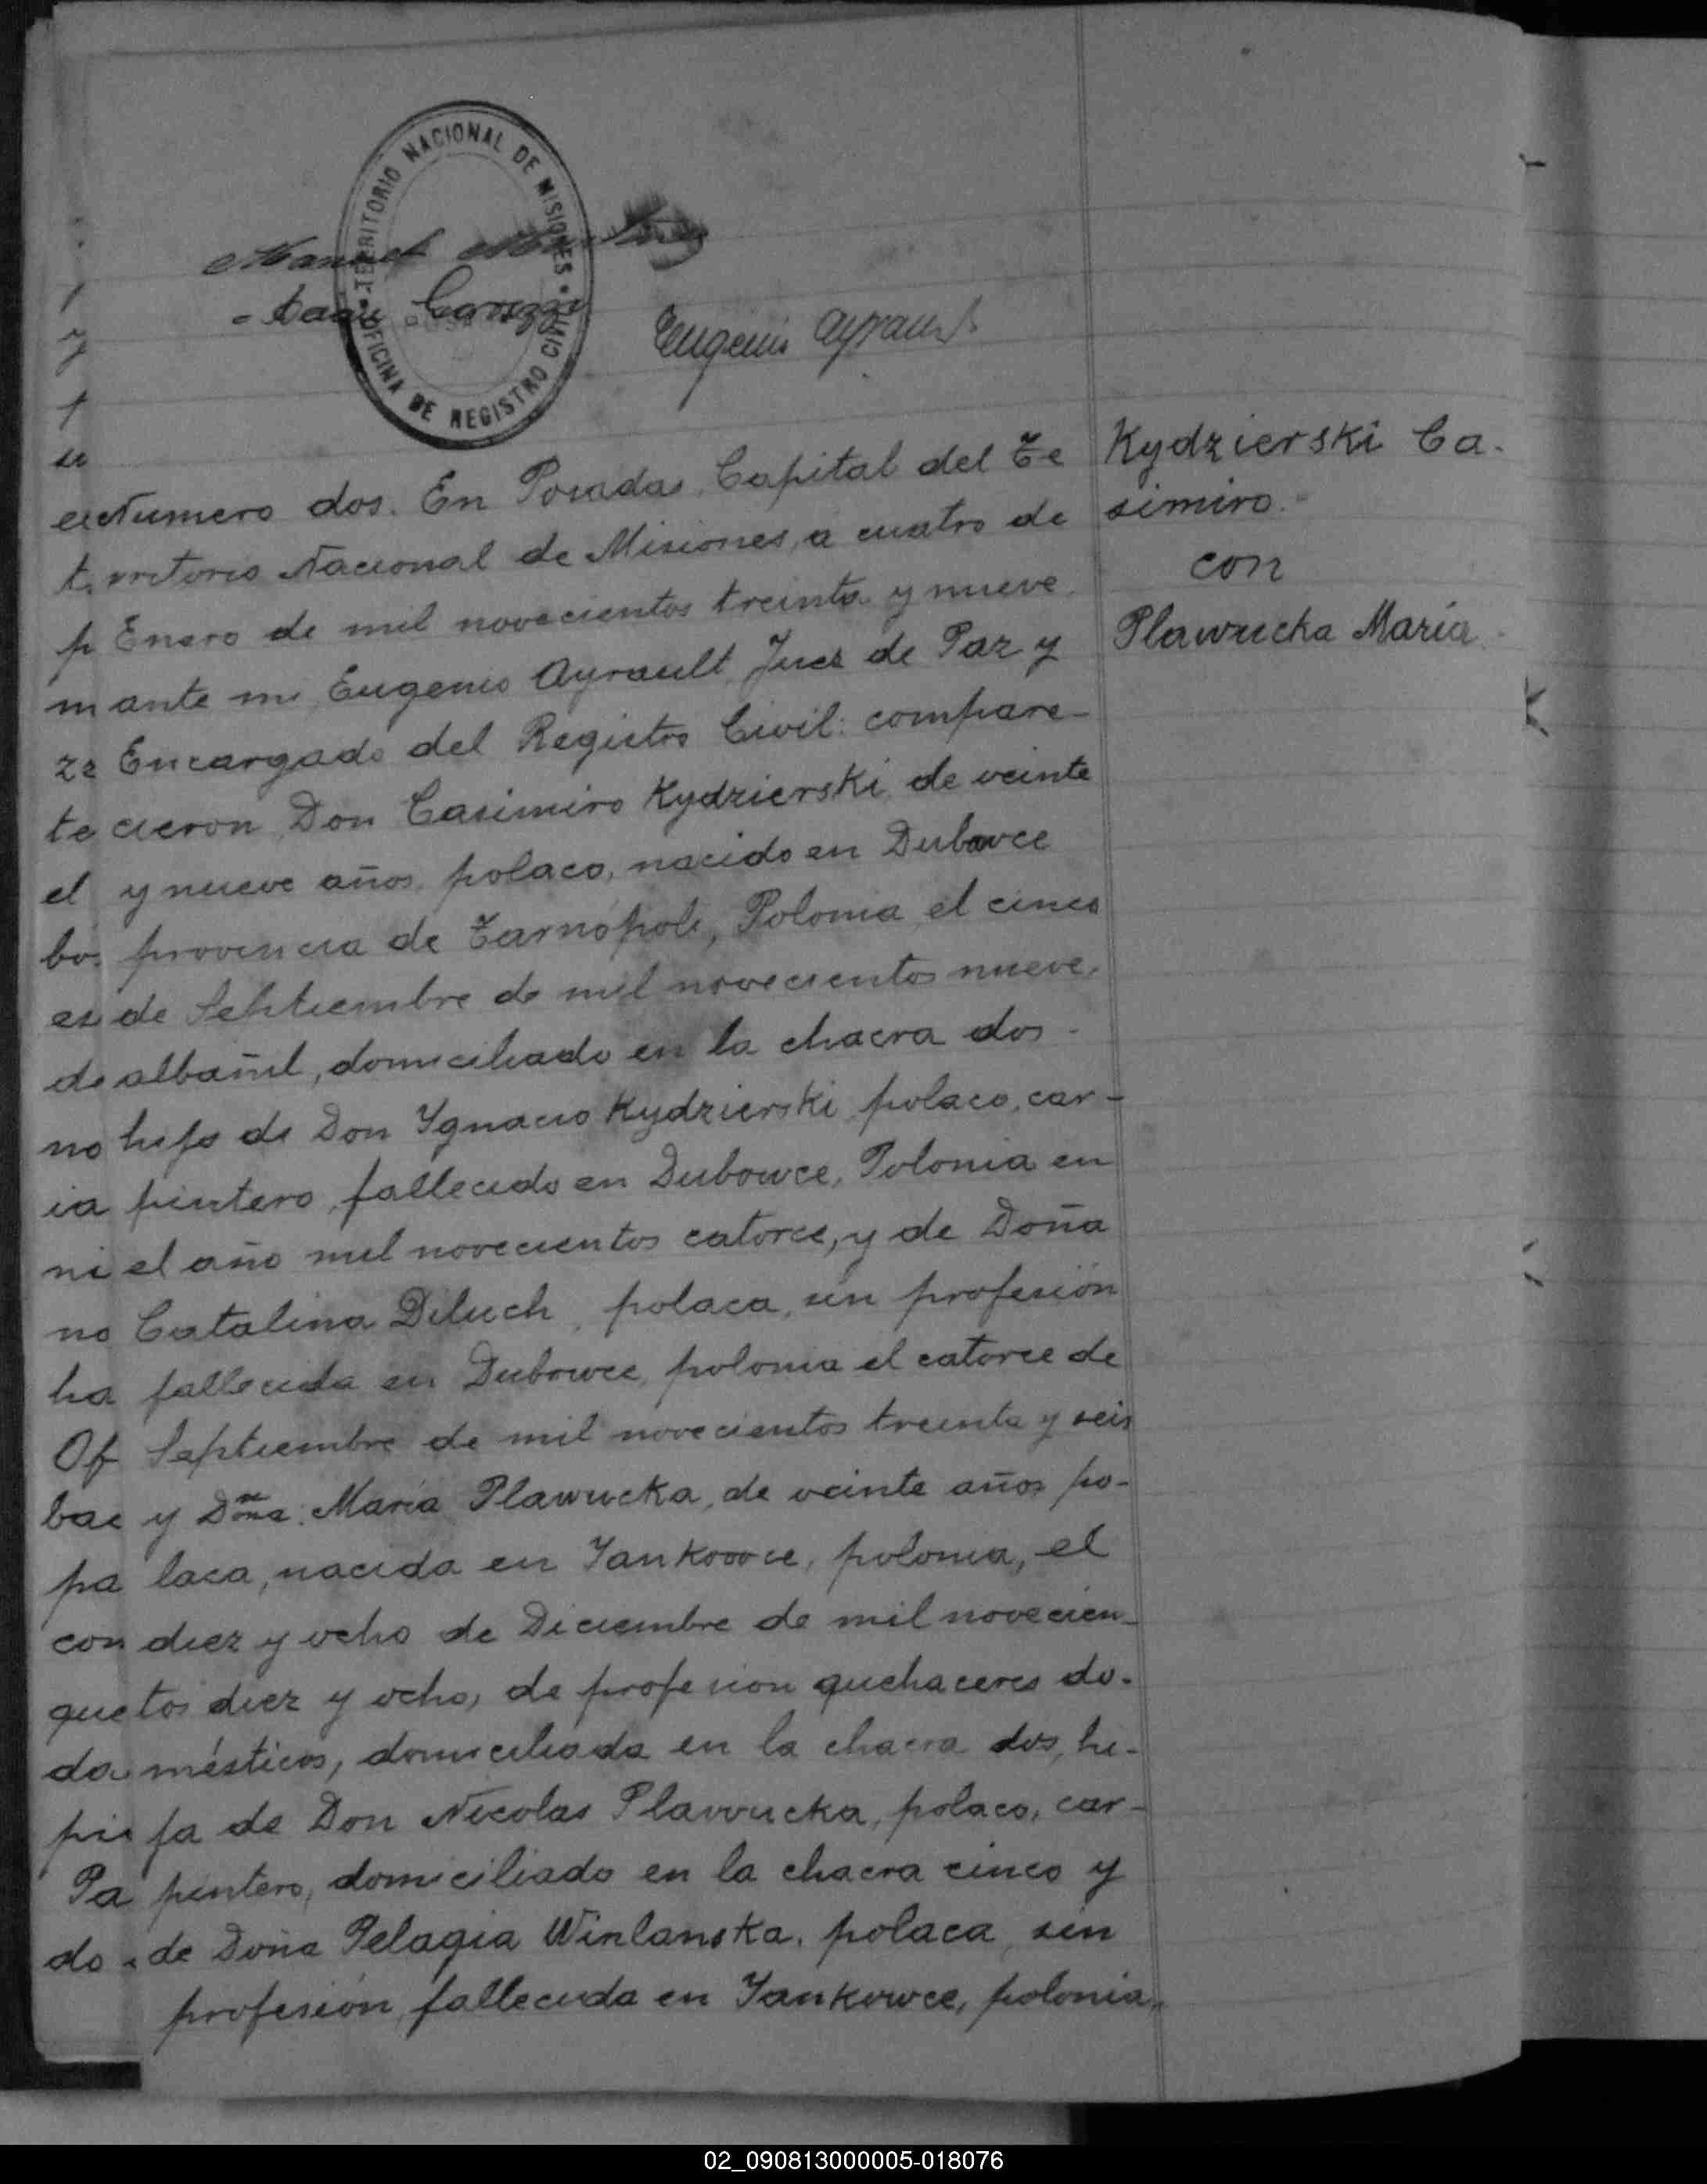 TERRITORIO NACIONAL DE MISIONES
OFICINA DE REGISTRO CIVIL
Manuel
Eugenio Ayrault
Kydzierski Ca-
simiro.-
con
Plawucka María
Numero dos. En Posadas, Capital del Te
rritorio Nacional de Misiones, a cuatro de
Enero de mil novecientos treinta y nueve,
ante mi Eugenio Ayrault, Juez de Paz y
Encargado del Registro Civil: compare-
cieron Don Casimiro Kydzierski, de veinte
y nueve años, polaco, nacido en Dubowce
provincia de Tarnópoli, Polonia, el cinco
de Sehtiembre de mil novecientos nueve,
albañil, domiciliado en la chacra dos -
hijo de Don Ygnacio Kydzierski, polaco, car-
pintero, fallecido en Dubowce, Polonia en
el año mil novecientos catorce, y de Doña
Catalina Diluch, polaca, sin profesión
fallecida en Dubowce, polonia el catorce de
Septiembre de mil novecientos treinta y seis
y Doña: María Plawucka, de veinte años po-
laca, nacida en Yankowce, polonia, el
diez y ocho de Diciembre de mil novecien-
tos diez y ocho, de profesion quehaceres do-
mésticos, domiciliada en la chacra dos, hi-
ja de Don Nicolas Plawucka, polaco, car-
pintero, domiciliado en la chacra cinco y
de Doña Pelagia Winlanska, polaca, sin
profesión, fallecida en Yankowce, polonia,
02_090813000005-018076